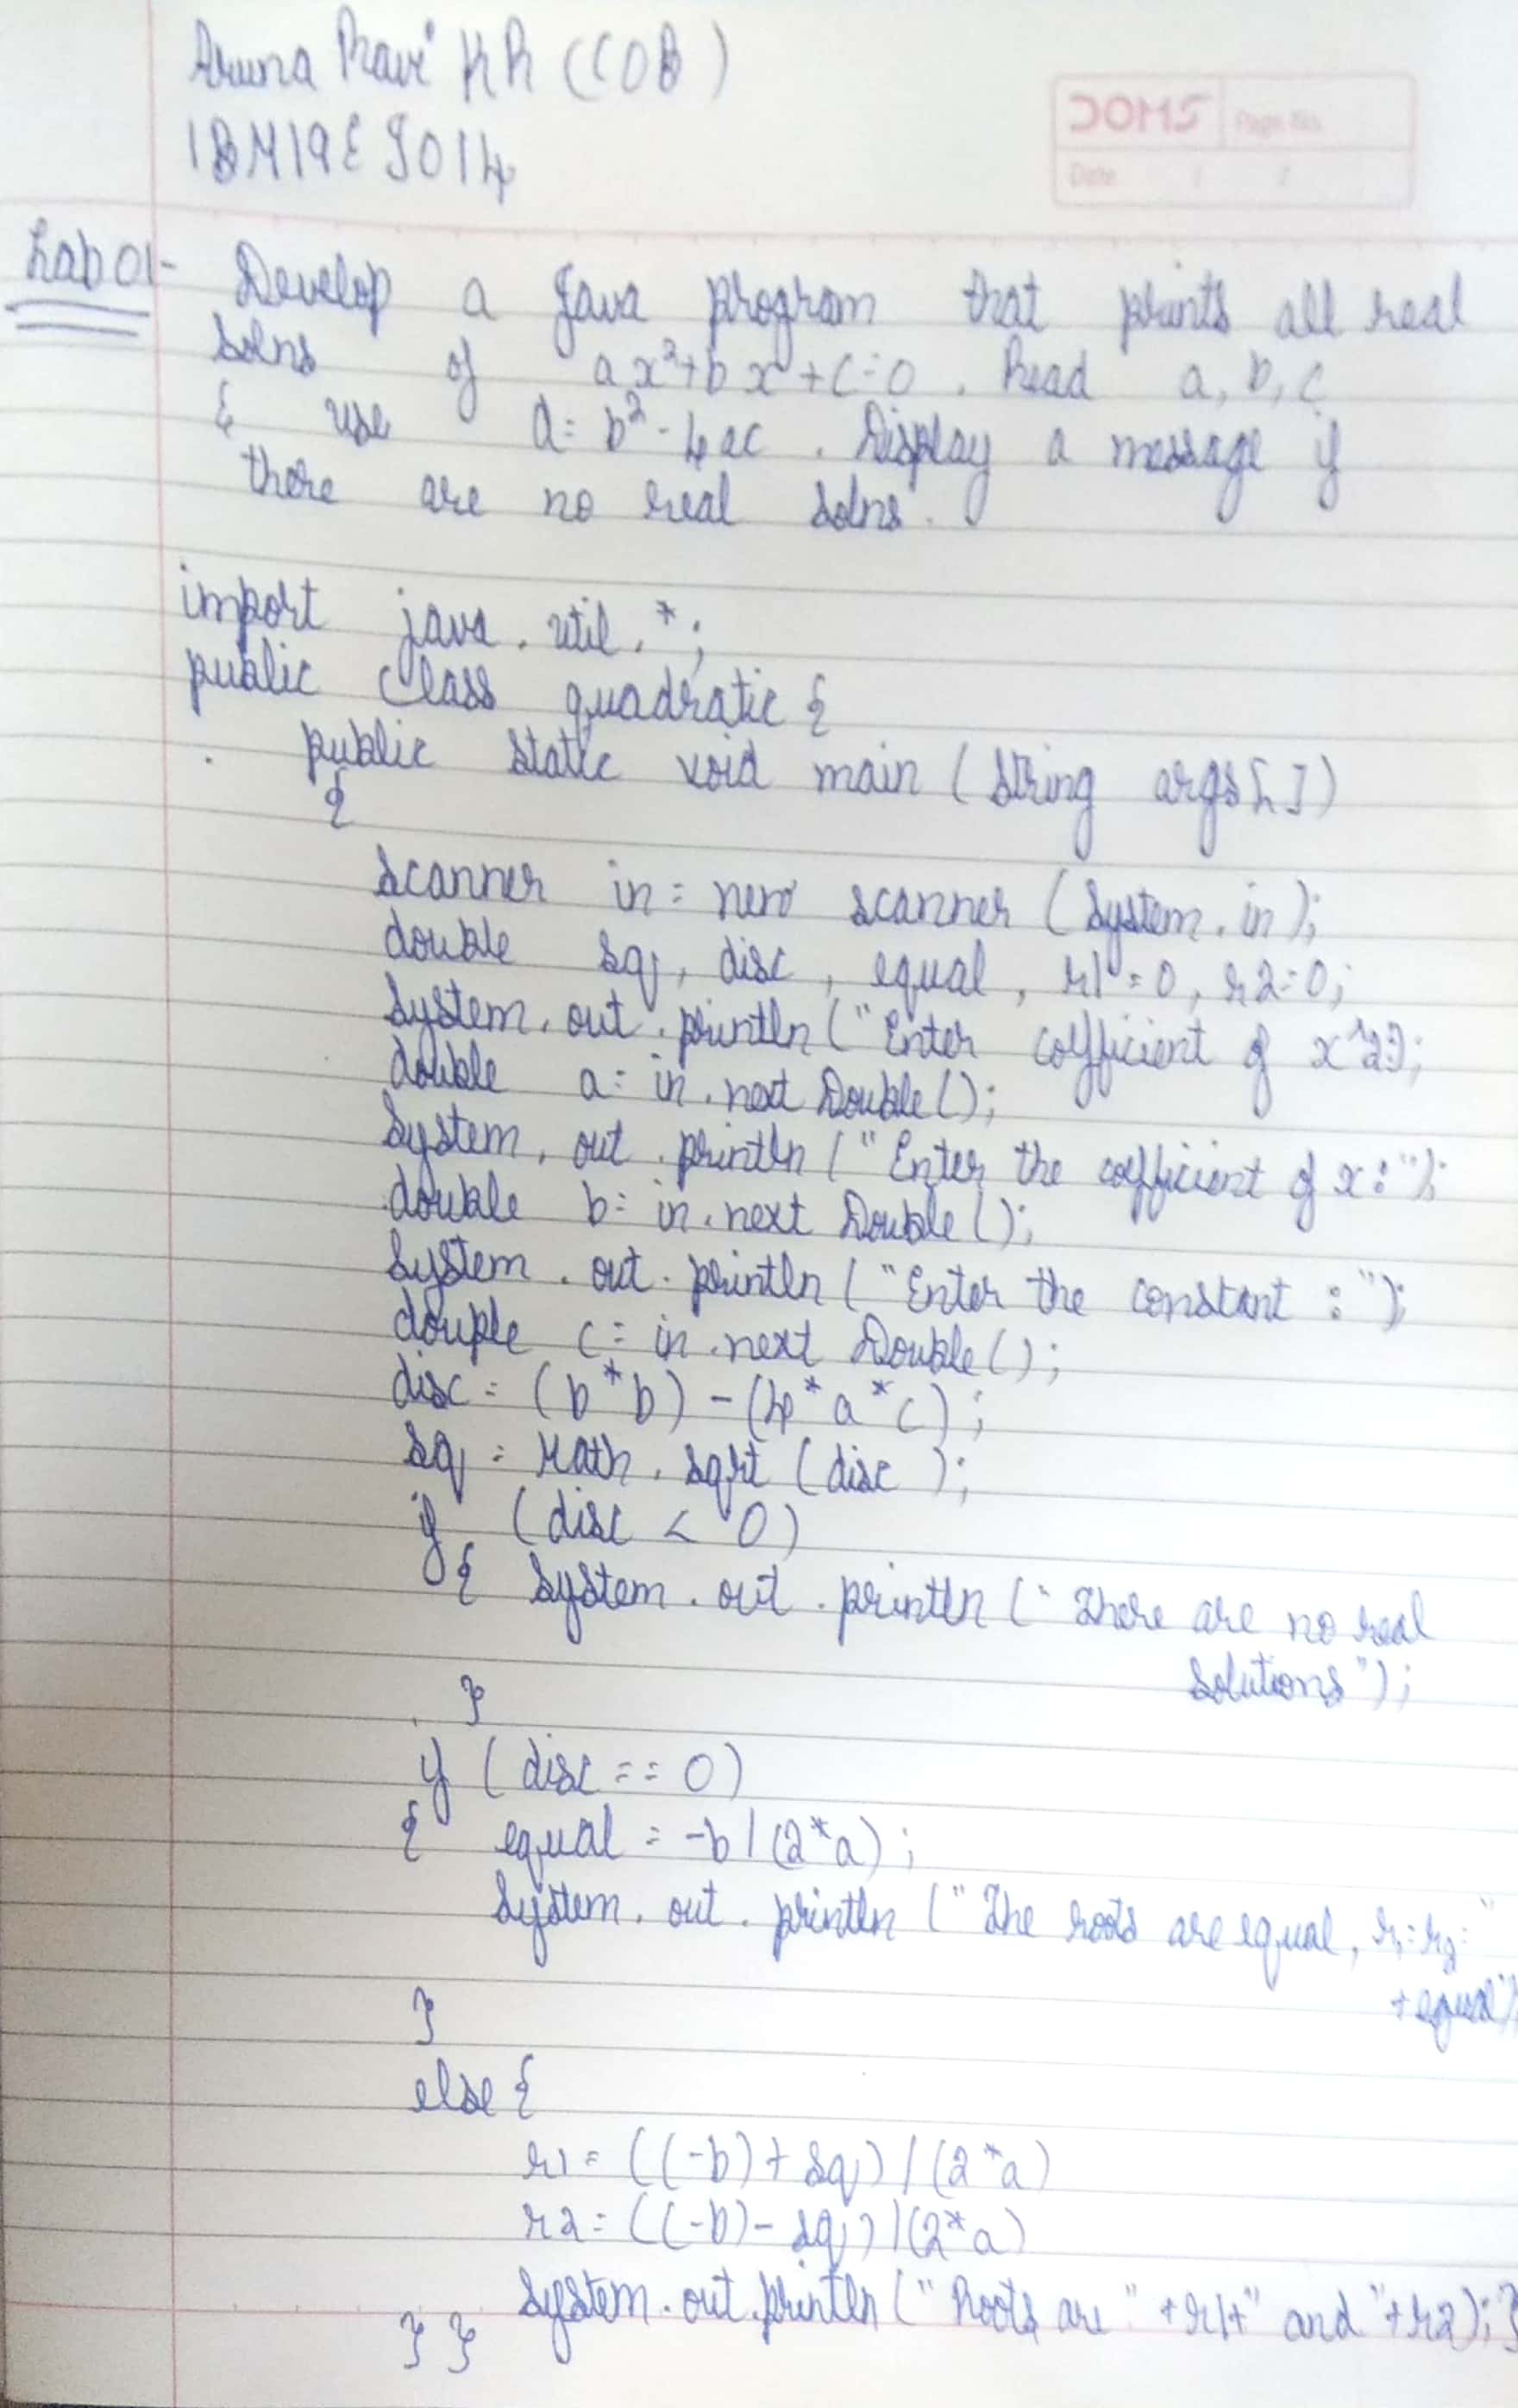 Aruna Ravi KR (COB)
1BM19EE014
DOMS Page No.
Date / /
Lab 01- Develop a Java program that prints all real
solns of ax²+bx+c=0. Read a, b, c
& use d= b²-4ac. Display a message if
there are no real solns.
import java.util.*;
public class quadratic {
public static void main (String args[])
{
Scanner in = new scanner (System.in);
double sq, disc, equal, r1=0, r2=0;
System.out.println ("Enter coefficient of x^2");
double a = in.next Double();
System.out.println ("Enter the coefficient of x:");
double b = in.next Double();
System.out.println ("Enter the constant :");
double c = in.next Double();
disc = (b*b) - (4*a*c);
sq = Math.sqrt (disc);
if (disc < 0)
{ System.out.println ("There are no real
solutions");
}
if (disc == 0)
{ equal = -b/(2*a);
System.out.println ("The roots are equal, r₁=r₂="
+equal);
}
else {
r1 = ((-b)+sq)/(2*a)
r2 = ((-b)-sq)/(2*a)
System.out.println ("Roots are "+r1+" and "+r2); }
} }